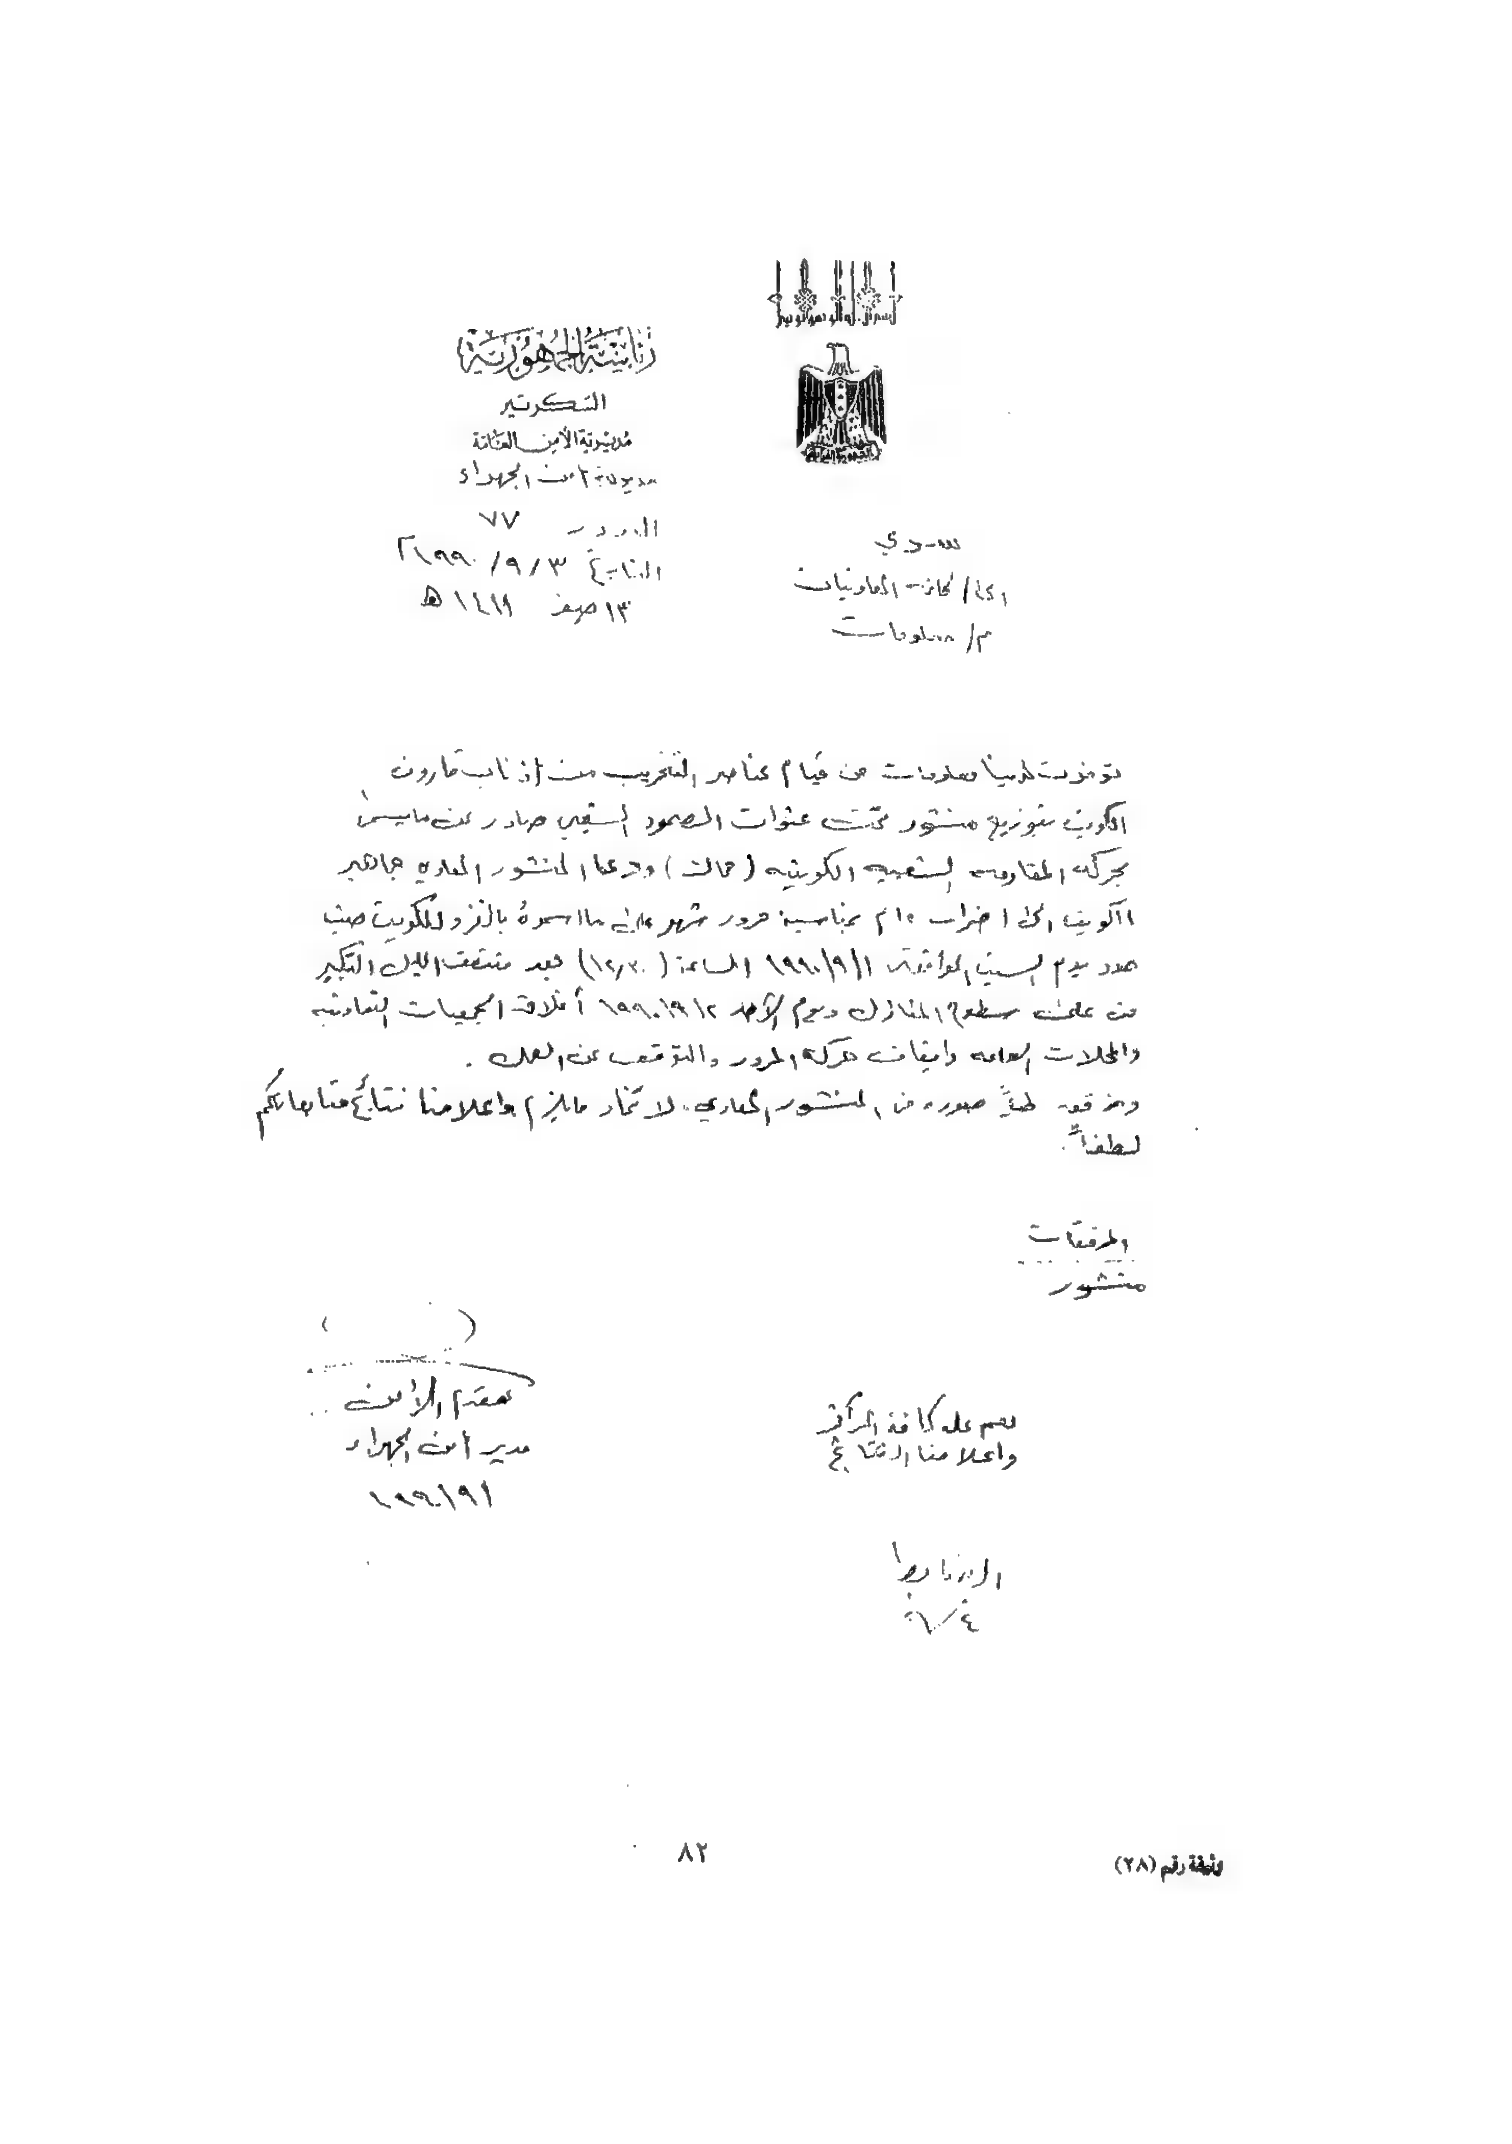 بسم الله الرحمن الرحيم
رئاسة الجمهورية
السكرتير
مديرية الأمن العامة
مديرية امن الجهراء
العدد ٧٧
التاريخ ٣ / ٩ / ١٩٩٠ م
١٣ صفر ١٤١١ هـ
سري
الى / كافة المعاونيات
م / معلومات
توفرت لدينا معلومات عن قيام عناصر التخريب من أذناب قارون
الكويت بتوزيع منشور تحت عنوان الصمود الشعبي صادر عن ما يسمى
بحركة المقاومة الشعبية الكويتية ( حماك ) ودعا المنشور المعادي جماهير
الكويت الى اضراب عام بمناسبة مرور شهر على ما اسموه بالغزو للكويت حيث
حدد يوم السبت الموافق ١/٩/١٩٩٠ الساعة ( ١٢,٣٠ ) بعد منتصف الليل التكبير
من على سطوح المنازل ويوم الأحد ٢/٩/١٩٩٠ أغلاق الجمعيات التعاونية
والمحلات العامه وايقاف حركة المرور والتوقف عن العمل .
ومرفق طياً صوره من المنشور المعادي . لاتخاذ مايلزم واعلامنا نتائج متابعاتكم
لطفاً .
المرفقات
منشور
( )
مقدم الأمن
مدير أمن الجهراء
١/٩/١٩٩٠
يعمم على كافة المراكز
واعلامنا النتائج
٨٢
وثيقة رقم (٢٨)